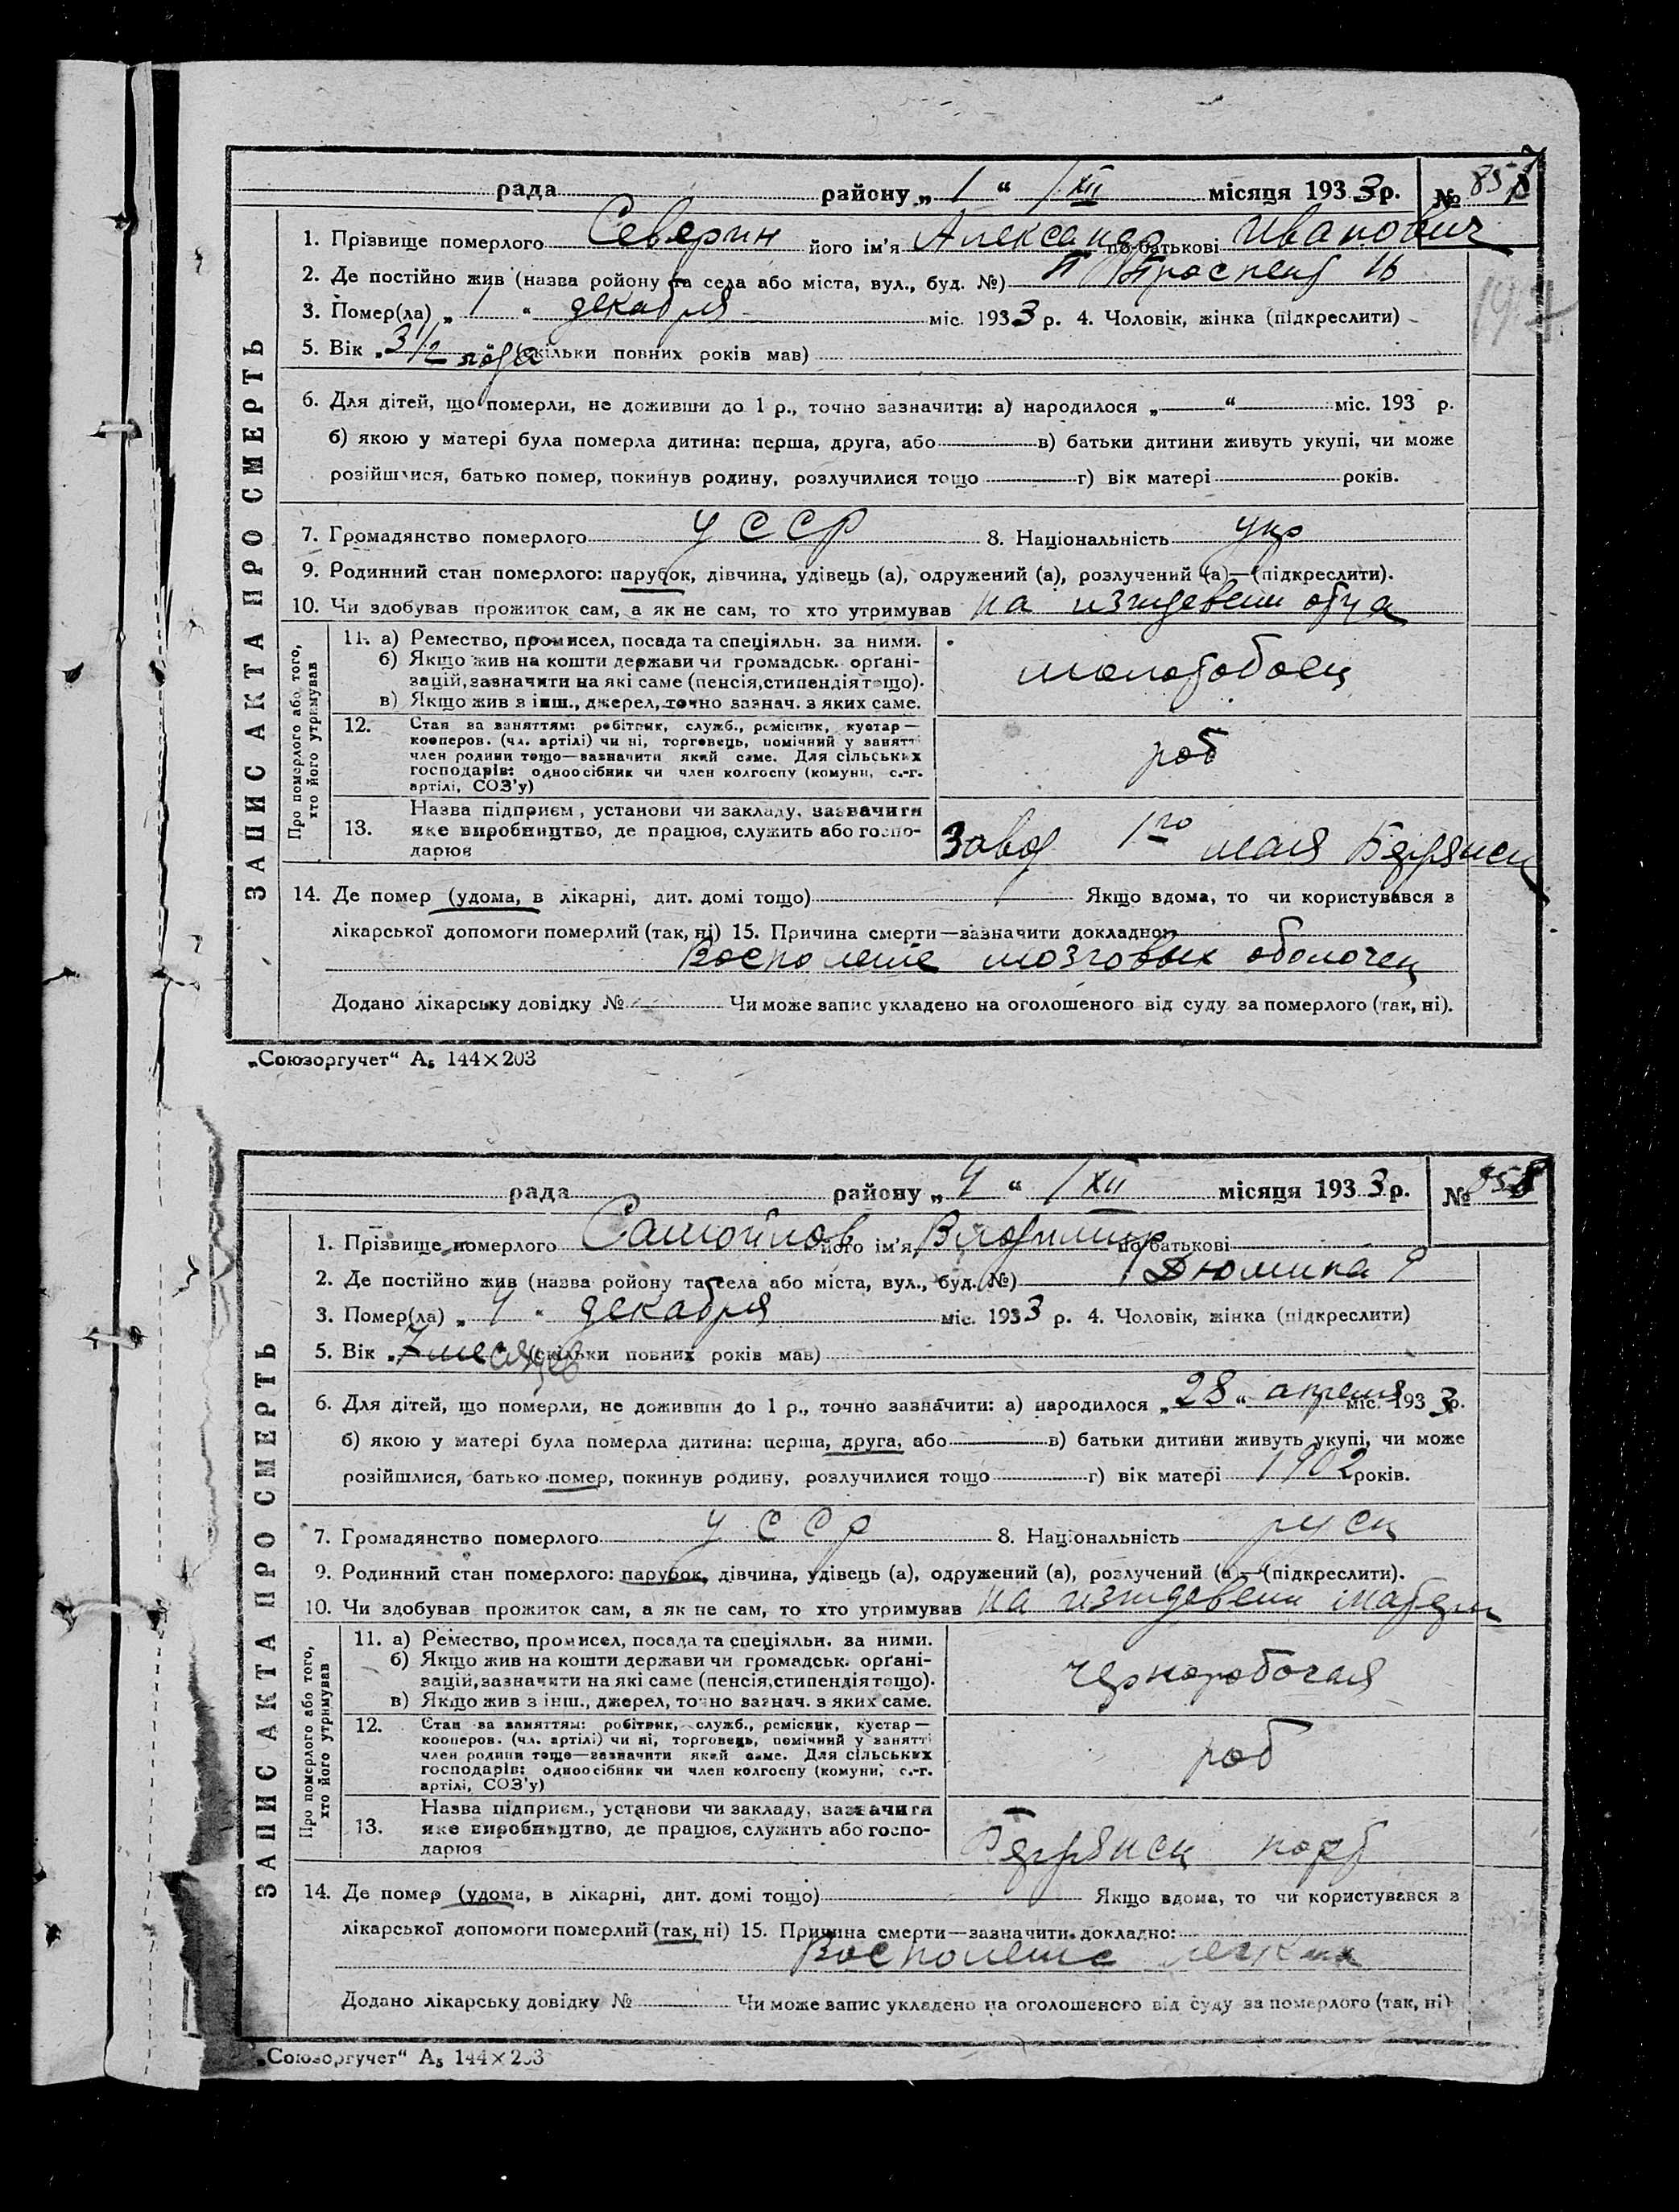 рада района „ 1 “ /XII місяця 1933 р. № 857
1. Прізвище померлого Северин його ім'я Александр по батькові Иванович
2. Де постійно жив (назва району та села або міста, вул., буд. №) П Проспект 16
3. Помер(ла) „ 1 “ декабря міс. 1933 р. 4. Чоловік, жінка (підкреслити)
5. Вік „ 3 1/2 года (скільки повних років мав)
6. Для дітей, що померли, не доживши до 1 р., точно зазначити: а) народилося „ “ міс. 193 р.
б) якою у матері була померла дитина: перша, друга, або в) батьки дитини живуть укупі, чи може
розійшлися, батько помер, покинув родину, розлучилися тощо г) вік матері років.
7. Громадянство померлого УССР 8. Національність укр
9. Родинний стан померлого: парубок, дівчина, удівець (а), одружений (а), розлучений (а)—(підкреслити).
10. Чи здобував прожиток сам, а як не сам, то хто утримував на изждевени отца
ЗАПИС АКТА ПРО СМЕРТЬ
Про померлого або того, хто його утримував
11. а) Ремество, промисел, посада та спеціяльн. за ними.
б) Якщо жив на кошти держави чи громадськ. орґані-
зацій, зазначити на які саме (пенсія, стипендія тощо).
в) Якщо жив з інш., джерел, точно зазнач. з яких саме.
молотобоец
12. Стан за заняттям: робітник, служб., ремісник, кустар—
кооперов. (чл. артілі) чи ні, торговець, помічний у занятті
член родини тощо—зазначити який саме. Для сільських
господарів: одноосібник чи член колгоспу (комуни, с.-г.
артілі, СОЗ'у)
роб
13. Назва підприєм., установи чи закладу, зазначити
яке виробництво, де працює, служить або госпо-
дарює
Завод 1го мая Бердянск
14. Де помер (удома, в лікарні, дит. домі тощо) Якщо вдома, то чи користувався з
лікарської допомоги померлий (так, ні) 15. Причина смерти—зазначити докладно:
Восполение мозговых оболочек
Додано лікарську довідку № Чи може запис укладено на оголошеного від суду за померлого (так, ні).
„Союзоргучет“ А₅ 144×203
рада району „ 4 “ /XII місяця 1933 р. № 858
1. Прізвище померлого Самойлов його ім'я Владимир по батькові
2. Де постійно жив (назва ройону та села або міста, вул., буд. №) Дюмина 9
3. Помер(ла) „ 4 “ декабря міс. 1933 р. 4. Чоловік, жінка (підкреслити)
5. Вік „ 7 месяцев (скільки повних років мав)
6. Для дітей, що померли, не доживши до 1 р., точно зазначити: а) народилося „ 28 “ апреля міс. 1933 р.
б) якою у матері була померла дитина: перша, друга, або в) батьки дитини живуть укупі, чи може
розійшлися, батько помер, покинув родину, розлучилися тощо г) вік матері 1902 років.
7. Громадянство померлого УССР 8. Національність руск
9. Родинний стан померлого: парубок, дівчина, удівець (а), одружений (а), розлучений (а)—(підкреслити).
10. Чи здобував прожиток сам, а як не сам, то хто утримував на изждевени матери
ЗАПИС АКТА ПРО СМЕРТЬ
Про померлого або того, хто його утримував
11. а) Ремество, промисел, посада та спеціяльн. за ними.
б) Якщо жив на кошти держави чи громадськ. орґані-
зацій, зазначити на які саме (пенсія, стипендія тощо).
в) Якщо жив з інш., джерел, точно зазнач. з яких саме.
чернорабочая
12. Стан за заняттям: робітник, служб., ремісник, кустар—
кооперов. (чл. артілі) чи ні, торговець, помічний у занятті
член родини тощо—зазначити який саме. Для сільських
господарів: одноосібник чи член колгоспу (комуни, с.-г.
артілі, СОЗ'у)
роб
13. Назва підприєм., установи чи закладу, зазначити
яке виробництво, де працює, служить або госпо-
дарює
Бердянск порт
14. Де помер (удома, в лікарні, дит. домі тощо) Якщо вдома, то чи користувався з
лікарської допомоги померлий (так, ні) 15. Причина смерти—зазначити докладно:
Восполение легких
Додано лікарську довідку № Чи може запис укладено на оголошеного від суду за померлого (так, ні)
„Союзоргучет“ А₅ 144×203